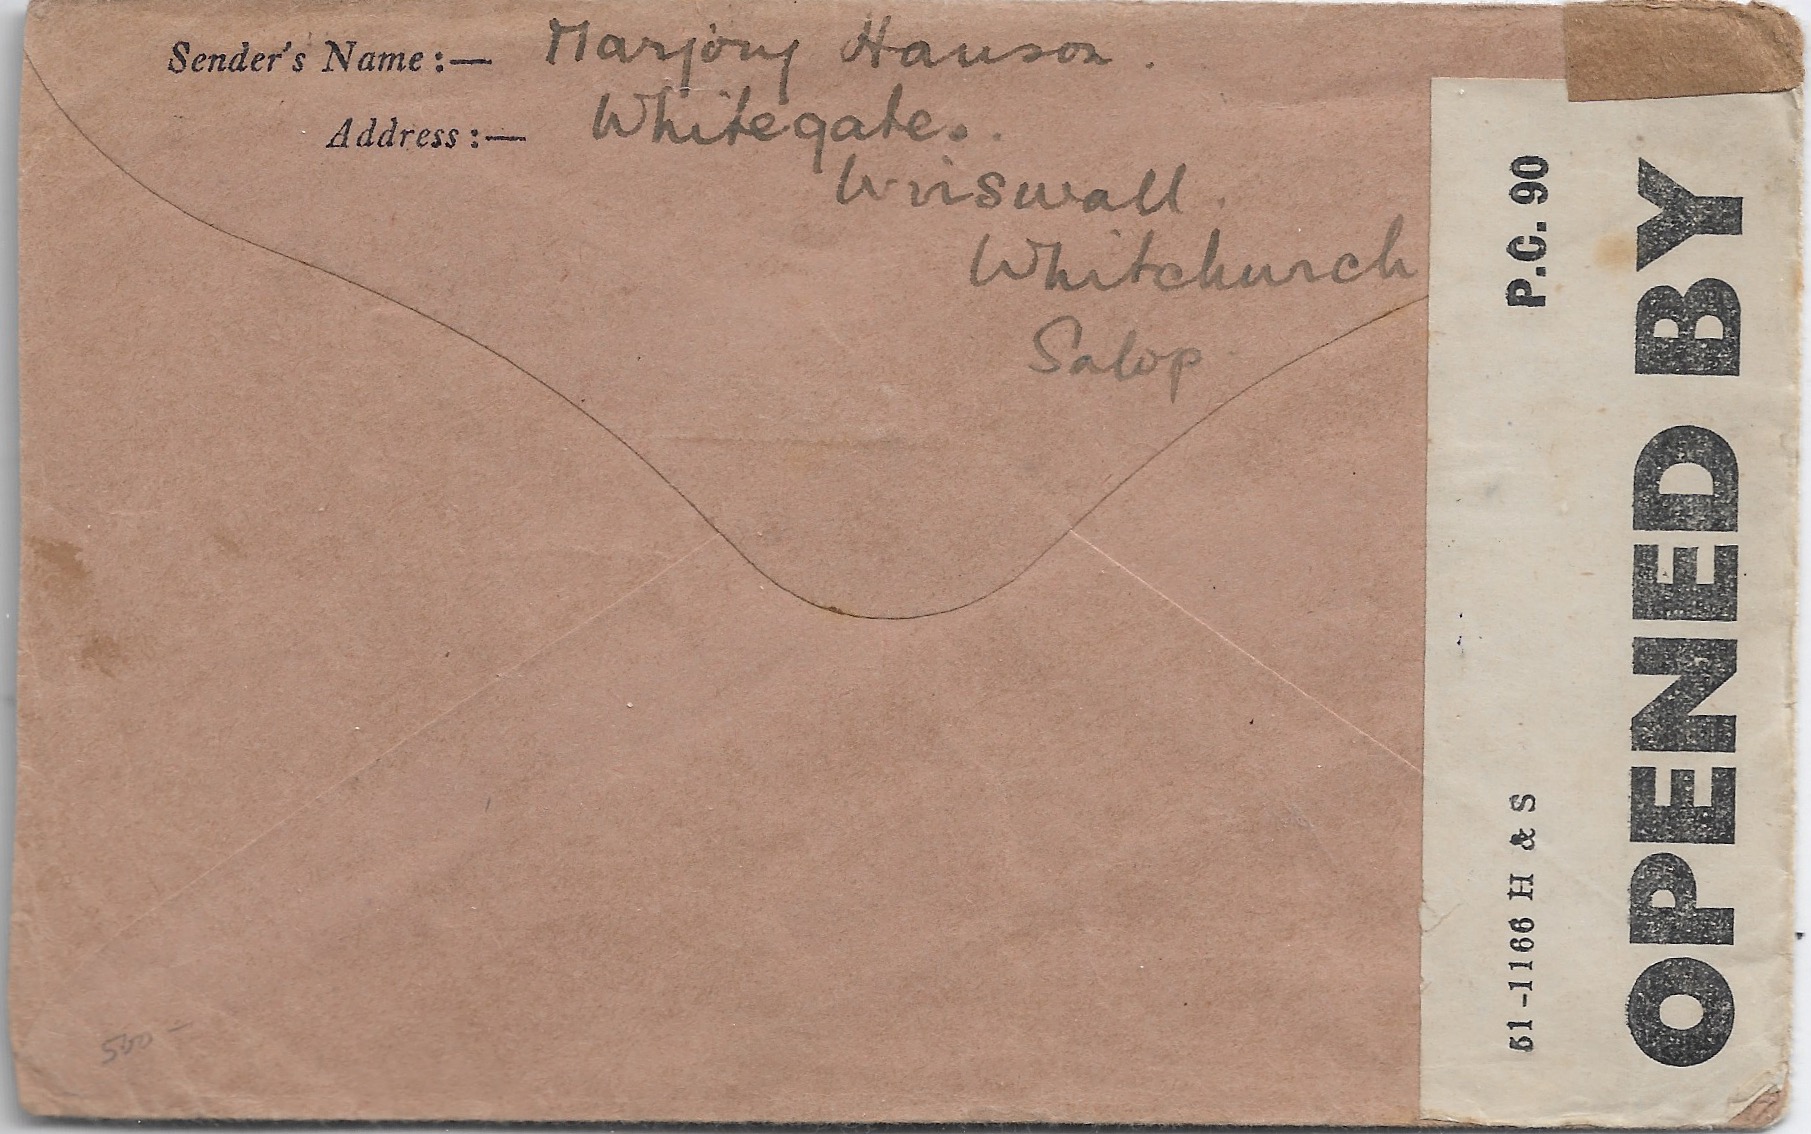 Sender's Name :— Marjory Hanson.
Address :— Whitegates.
Wriswall.
Whitchurch
Salop
P.C. 90
OPENED BY
51-1166 H & S
500 -